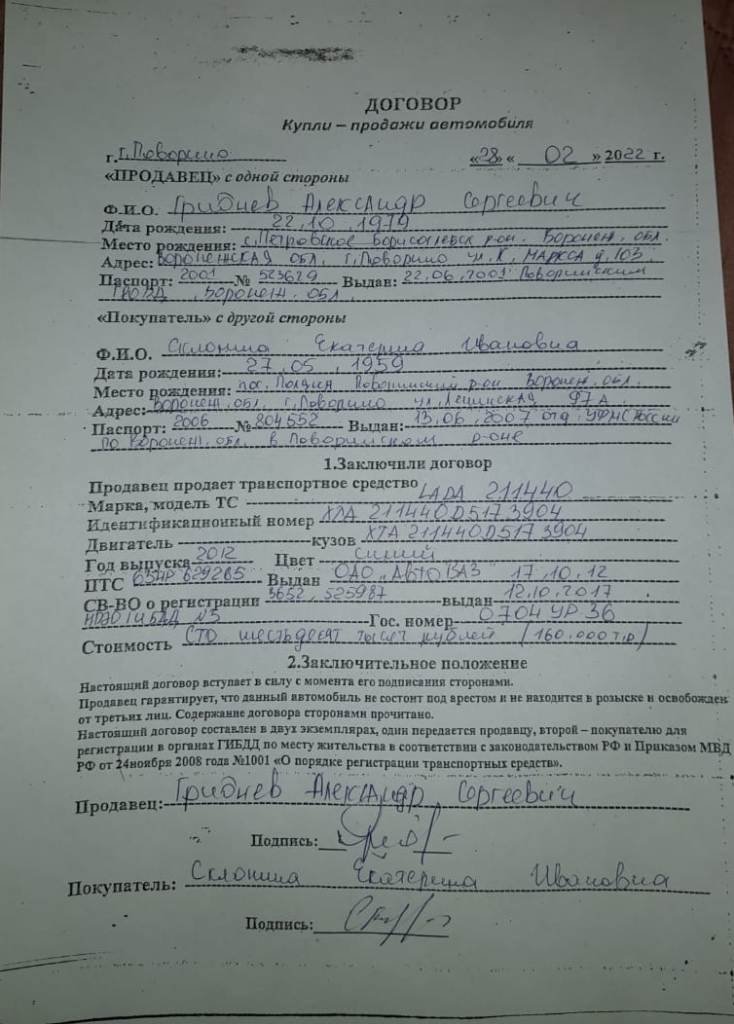 ДОГОВОР
Купли – продажи автомобиля
г. г. Поворино «28» « 02 » 2022 г.
«ПРОДАВЕЦ» с одной стороны
Ф.И.О. Гриднев Александр Сергеевич
Дата рождения: 22.10.1979
Место рождения: с. Петровское Борисоглебск р-он. Воронеж. обл.
Адрес: Воронежская обл. г. Поворино ул. К. Маркса д. 103
Паспорт: 2001 № 523629 Выдан: 22.06.2001 Поворинским
РОВД. Воронеж. обл.
«Покупатель» с другой стороны
Ф.И.О. Склонина Екатерина Ивановна
Дата рождения: 27.05.1959
Место рождения: пос. Поворинский р-он Воронеж. обл.
Адрес: Воронеж. обл. г. Поворино ул. Ленинская 97А
Паспорт: 2006 № 804552 Выдан: 13.06.2007 отд УФМС России
по Воронеж. обл. в Поворинском р-оне
1.Заключили договор
Продавец продает транспортное средство
Марка, модель ТС LADA 211440
Идентификационный номер XTA 211440D5173904
Двигатель кузов XTA 211440D5173904
Год выпуска 2012 Цвет синий
ПТС 63НР 629285 Выдан ОАО „АвтоВАЗ" 17.10.12
СВ-ВО о регистрации 3652, 525987 выдан 12.10.2017
№5 Гос. номер О704УР 36
Стоимость Сто шестьдесят тысяч рублей (160.000 т.р)
2.Заключительное положение
Настоящий договор вступает в силу с момента его подписания сторонами.
Продавец гарантирует, что данный автомобиль не состоит под арестом и не находится в розыске и освобожден
от третьих лиц. Содержание договора сторонами прочитано.
Настоящий договор составлен в двух экземплярах, один передается продавцу, второй – покупателю для
регистрации в органах ГИБДД по месту жительства в соответствии с законодательством РФ и Приказом МВД
РФ от 24ноября 2008 года №1001 «О порядке регистрации транспортных средств».
Продавец: Гриднев Александр Сергеевич
Подпись:
Покупатель: Склонина Екатерина Ивановна
Подпись: